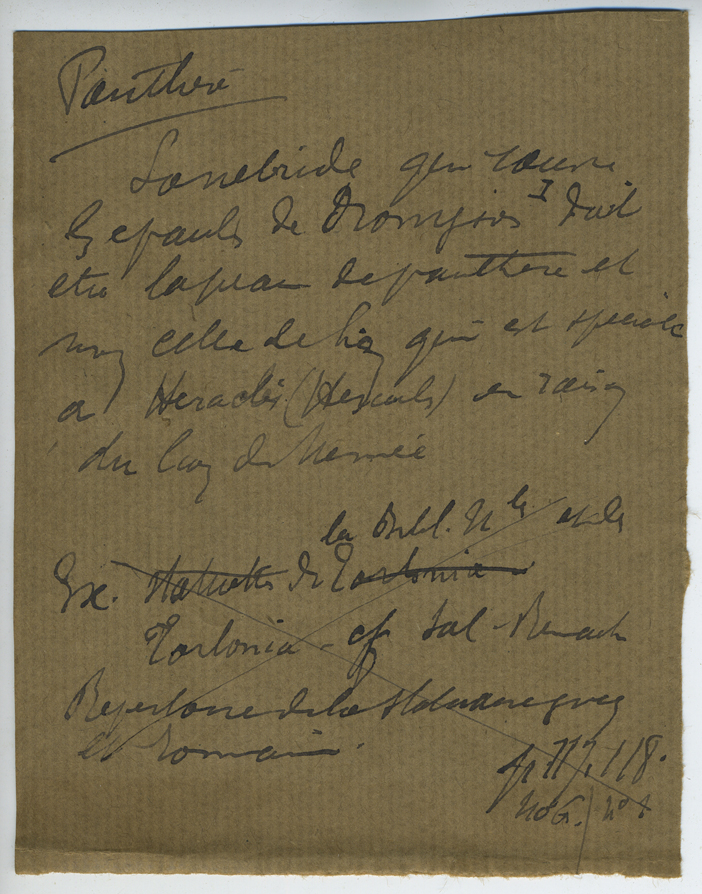 Panthère
La nebride qui couvre
les epaules de Dionysos I doit
etre la peau de panthere et
non celle de lion qui est speciale
a Heracles (Hercule) en raison
du lion de Nemée
la Bibl. Nle et de
Ex. statuette de Torlonia
Torlonia - cf Sal - Reinach
Repertoire de la statuaire grecq
et romaine.
p 117. 118.
No 6. / No